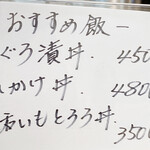 おすすめ飯ー
ぐろ漬丼. 450
かけ丼 480
いもとろろ丼. 350